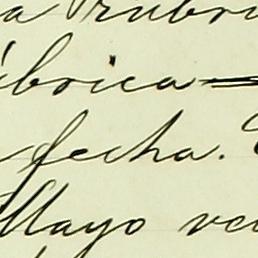 a rubri
ubrica
fecha.
Mayo ve